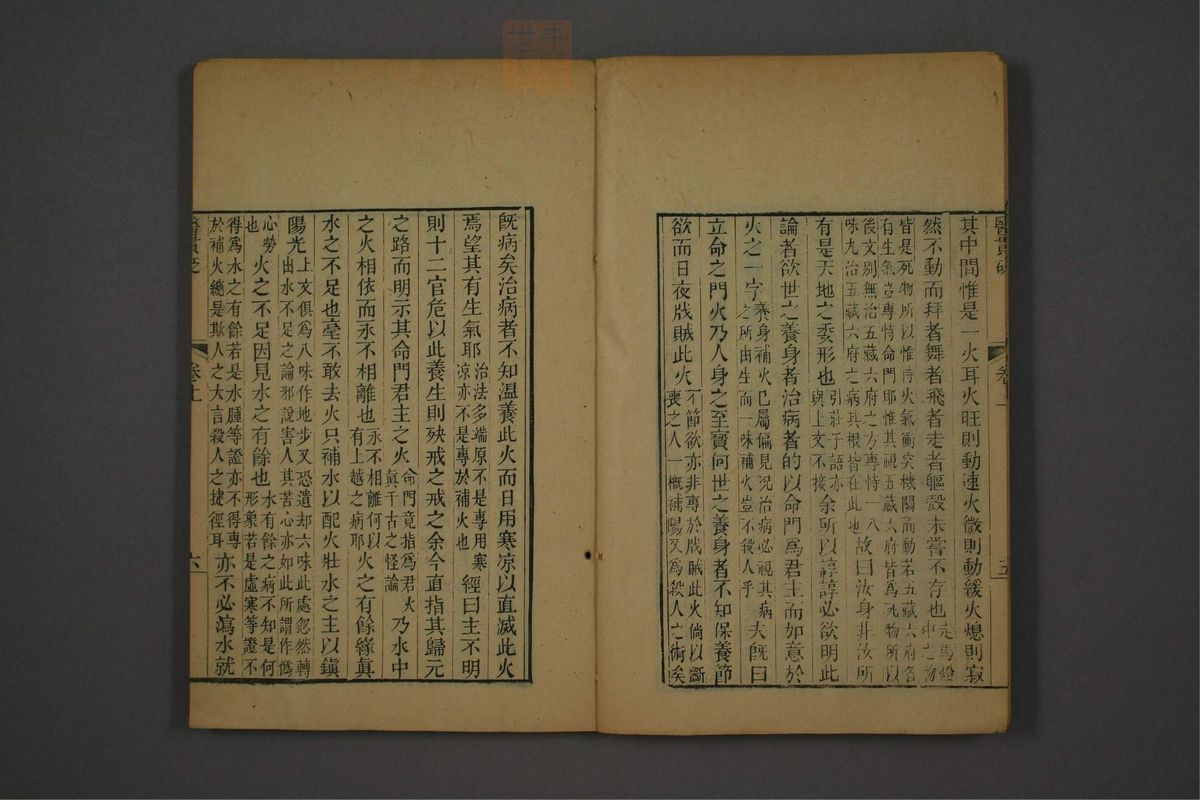 其中間惟是一火耳火旺則動速火微則動緩火熄則寂
然不動而拜者舞者飛者走者軀殼未嘗不存也走馬燈中之物
皆是死物所以惟恃火氣衝突機關而動若五藏六府各
有生氣豈專恃命門耶惟其視五藏六府皆爲死物所以
後文别無治五藏六府之方專恃一八味丸治五藏六府之病其根皆在此也故曰汝身非汝所
有是天地之委形也引莊子語亦與上文不接余所以諄諄必欲明此
論者欲世之養身者治病者的以命門爲君主而加意於
火之一字養身補火已屬偏見况治病必視其病之所由生而一味補火豈不殺人乎夫既曰
立命之門火乃人身之至寶何世之養身者不知保養節
欲而日夜戕賊此火不節欲亦非專於戕賊此火倘以斵喪之人一概補陽又爲殺人之術矣
醫貫砭 卷上 五
旣病矣治病者不知溫養此火而日用寒凉以直滅此火
焉望其有生氣耶治法多端原不是專用寒凉亦不是專於補火也經曰主不明
則十二官危以此養生則殃戒之戒之余今直指其歸元
之路而明示其命門君主之火命門竟指爲君火眞千古之怪論乃水中
之火相依而永不相離也永不相離何以有上越之病耶火之有餘緣眞
水之不足也毫不敢去火只補水以配火壯水之主以鎭
陽光上文俱爲八味作地步又恐遺却六味此處忽然轉出水不足之論邪說害人其苦心亦如此所謂作僞
心勞也火之不足因見水之有餘也水有餘之病不知是何形象若是虛寒等證不
得爲水之有餘若是水腫等證亦不得專於補火總是欺人之大言殺人之捷徑耳亦不必瀉水就
醫貫砭 卷上 六